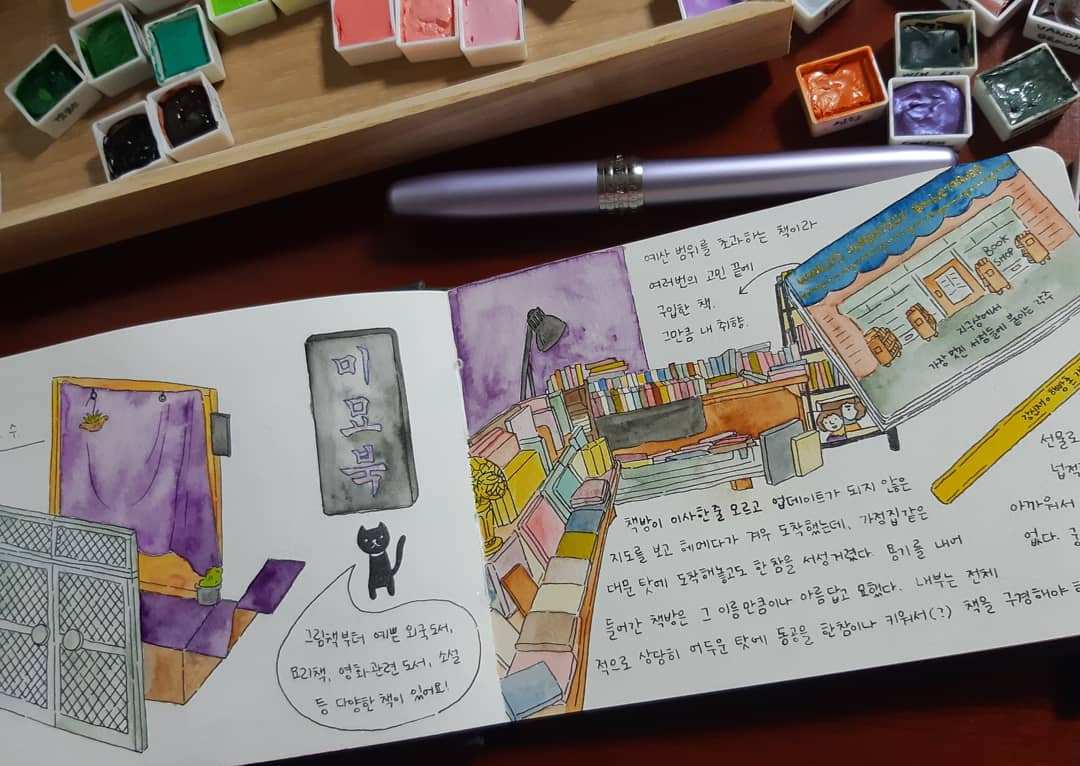 수
미
모
북
그림책부터 예쁜 외국도서,
요리책, 영화관련 도서, 소설
등 다양한 책이 있어요!
예산 범위를 초과하는 책이라
여러번의 고민 끝에
구입한 책.
그만큼 내 취향.
BOOK
SHOP
지구상에서
가장 멋진 서점들에 붙이는 각주
책방이 이사한줄 모르고 업데이트가 되지 않은
지도를 보고 헤메다가 겨우 도착했는데, 가정집같은
대문 탓에 도착해놓고도 한참을 서성거렸다. 용기를 내어
들어간 책방은 그 이름만큼이나 아름답고 묘했다. 내부는 전체
적으로 상당히 어두운 탓에 동공을 한참이나 키워서(?) 책을 구경해야
선물로
넙적
아까워서
없다.